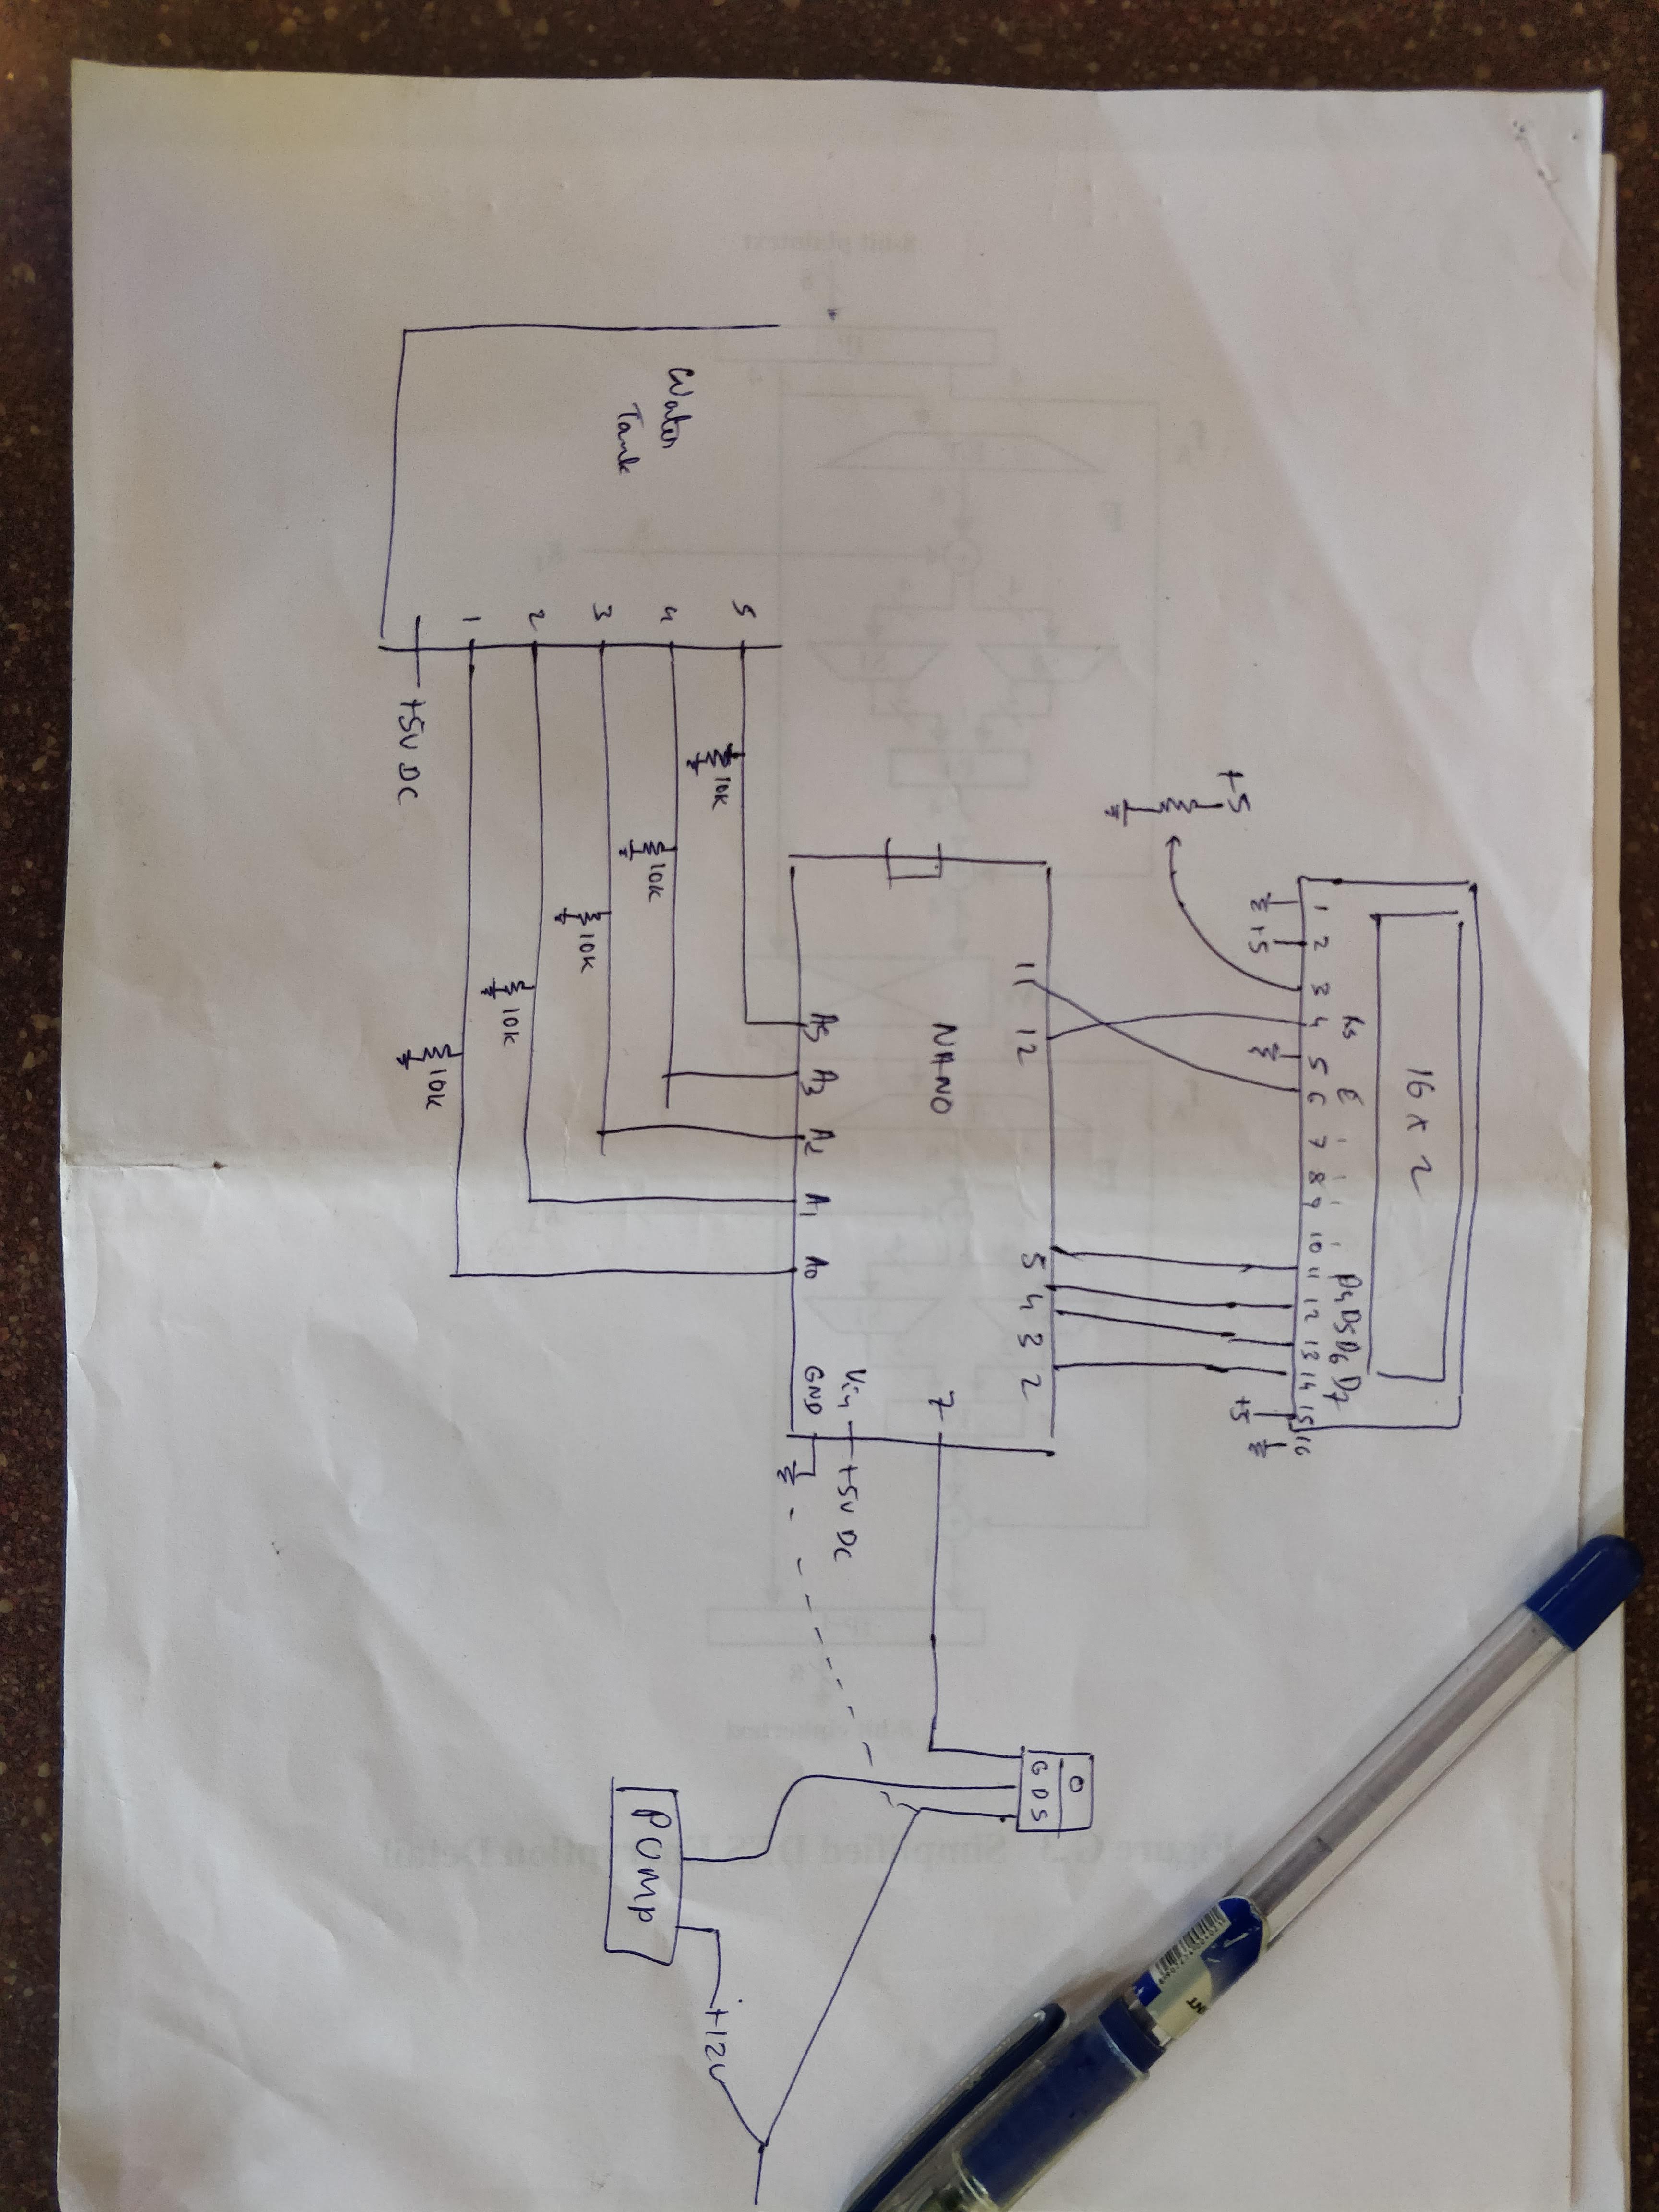 16 x 2
Rs E D4 D5 D6 D7
1 2 3 4 5 6 7 8 9 10 11 12 13 14 15 16
+5
+5
+5
11 12 5 4 3 2
G D S
NANO
7
Vin +5V DC
GND
A5 A3 A2 A1 A0
5
10K
+12V
Water
Tank
4
10K
PUMP
3
10K
2
10K
1
10K
+5V DC